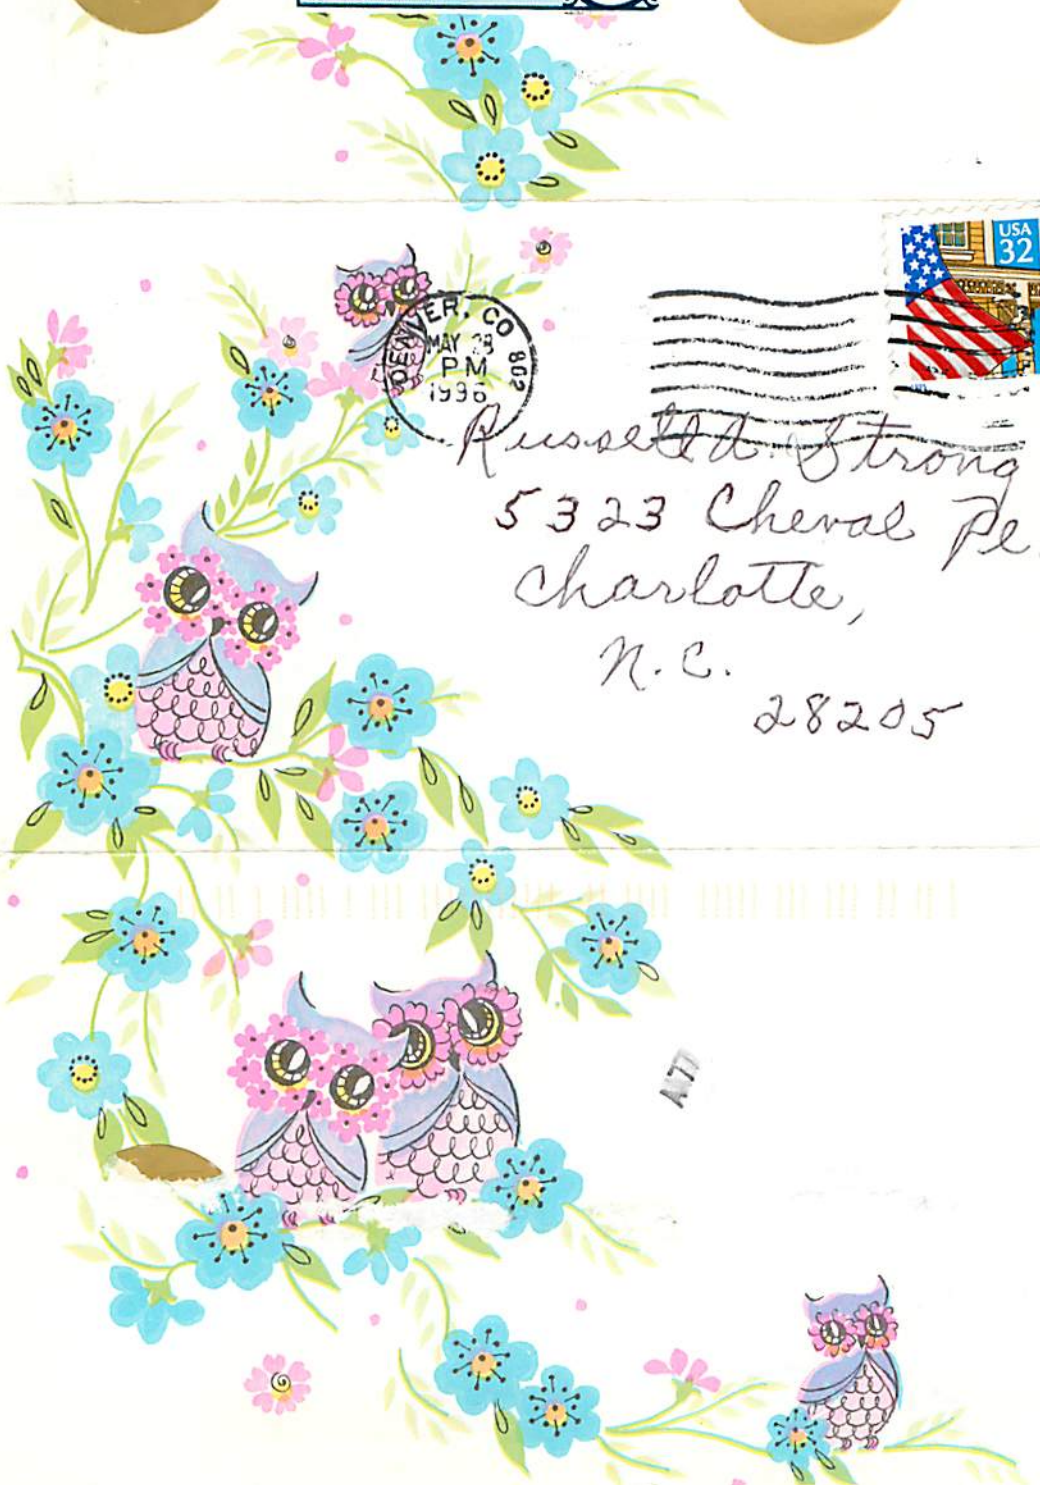 USA
32
DENVER, CO 802
MAY 28
PM
1996
Russell A. Strong
5323 Cheval Pl.
Charlotte,
N.C.
28205